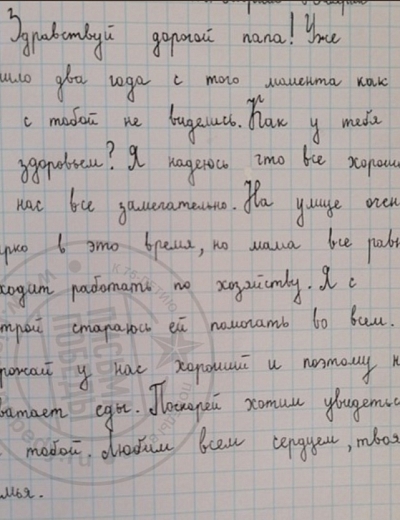 Здравствуй дорогой папа! Уже
шло два года с того момента как
с тобой не виделись. Как у тебя
здоровьем? Я надеюсь что все хорош
нас все замечательно. На улице очен
рко в это время, но мама все равн
ходит работать по хозяйству. Я с
трой стараюсь ей помогать во всем.
рожай у нас хороший и поэтому н
ватает еды. Поскорей хотим увидетьс
тобой. Любим всем сердцем, твоя
мья.
К 75-ЛЕТИЮ
ПИСЬМО
ПОБЕДЫ